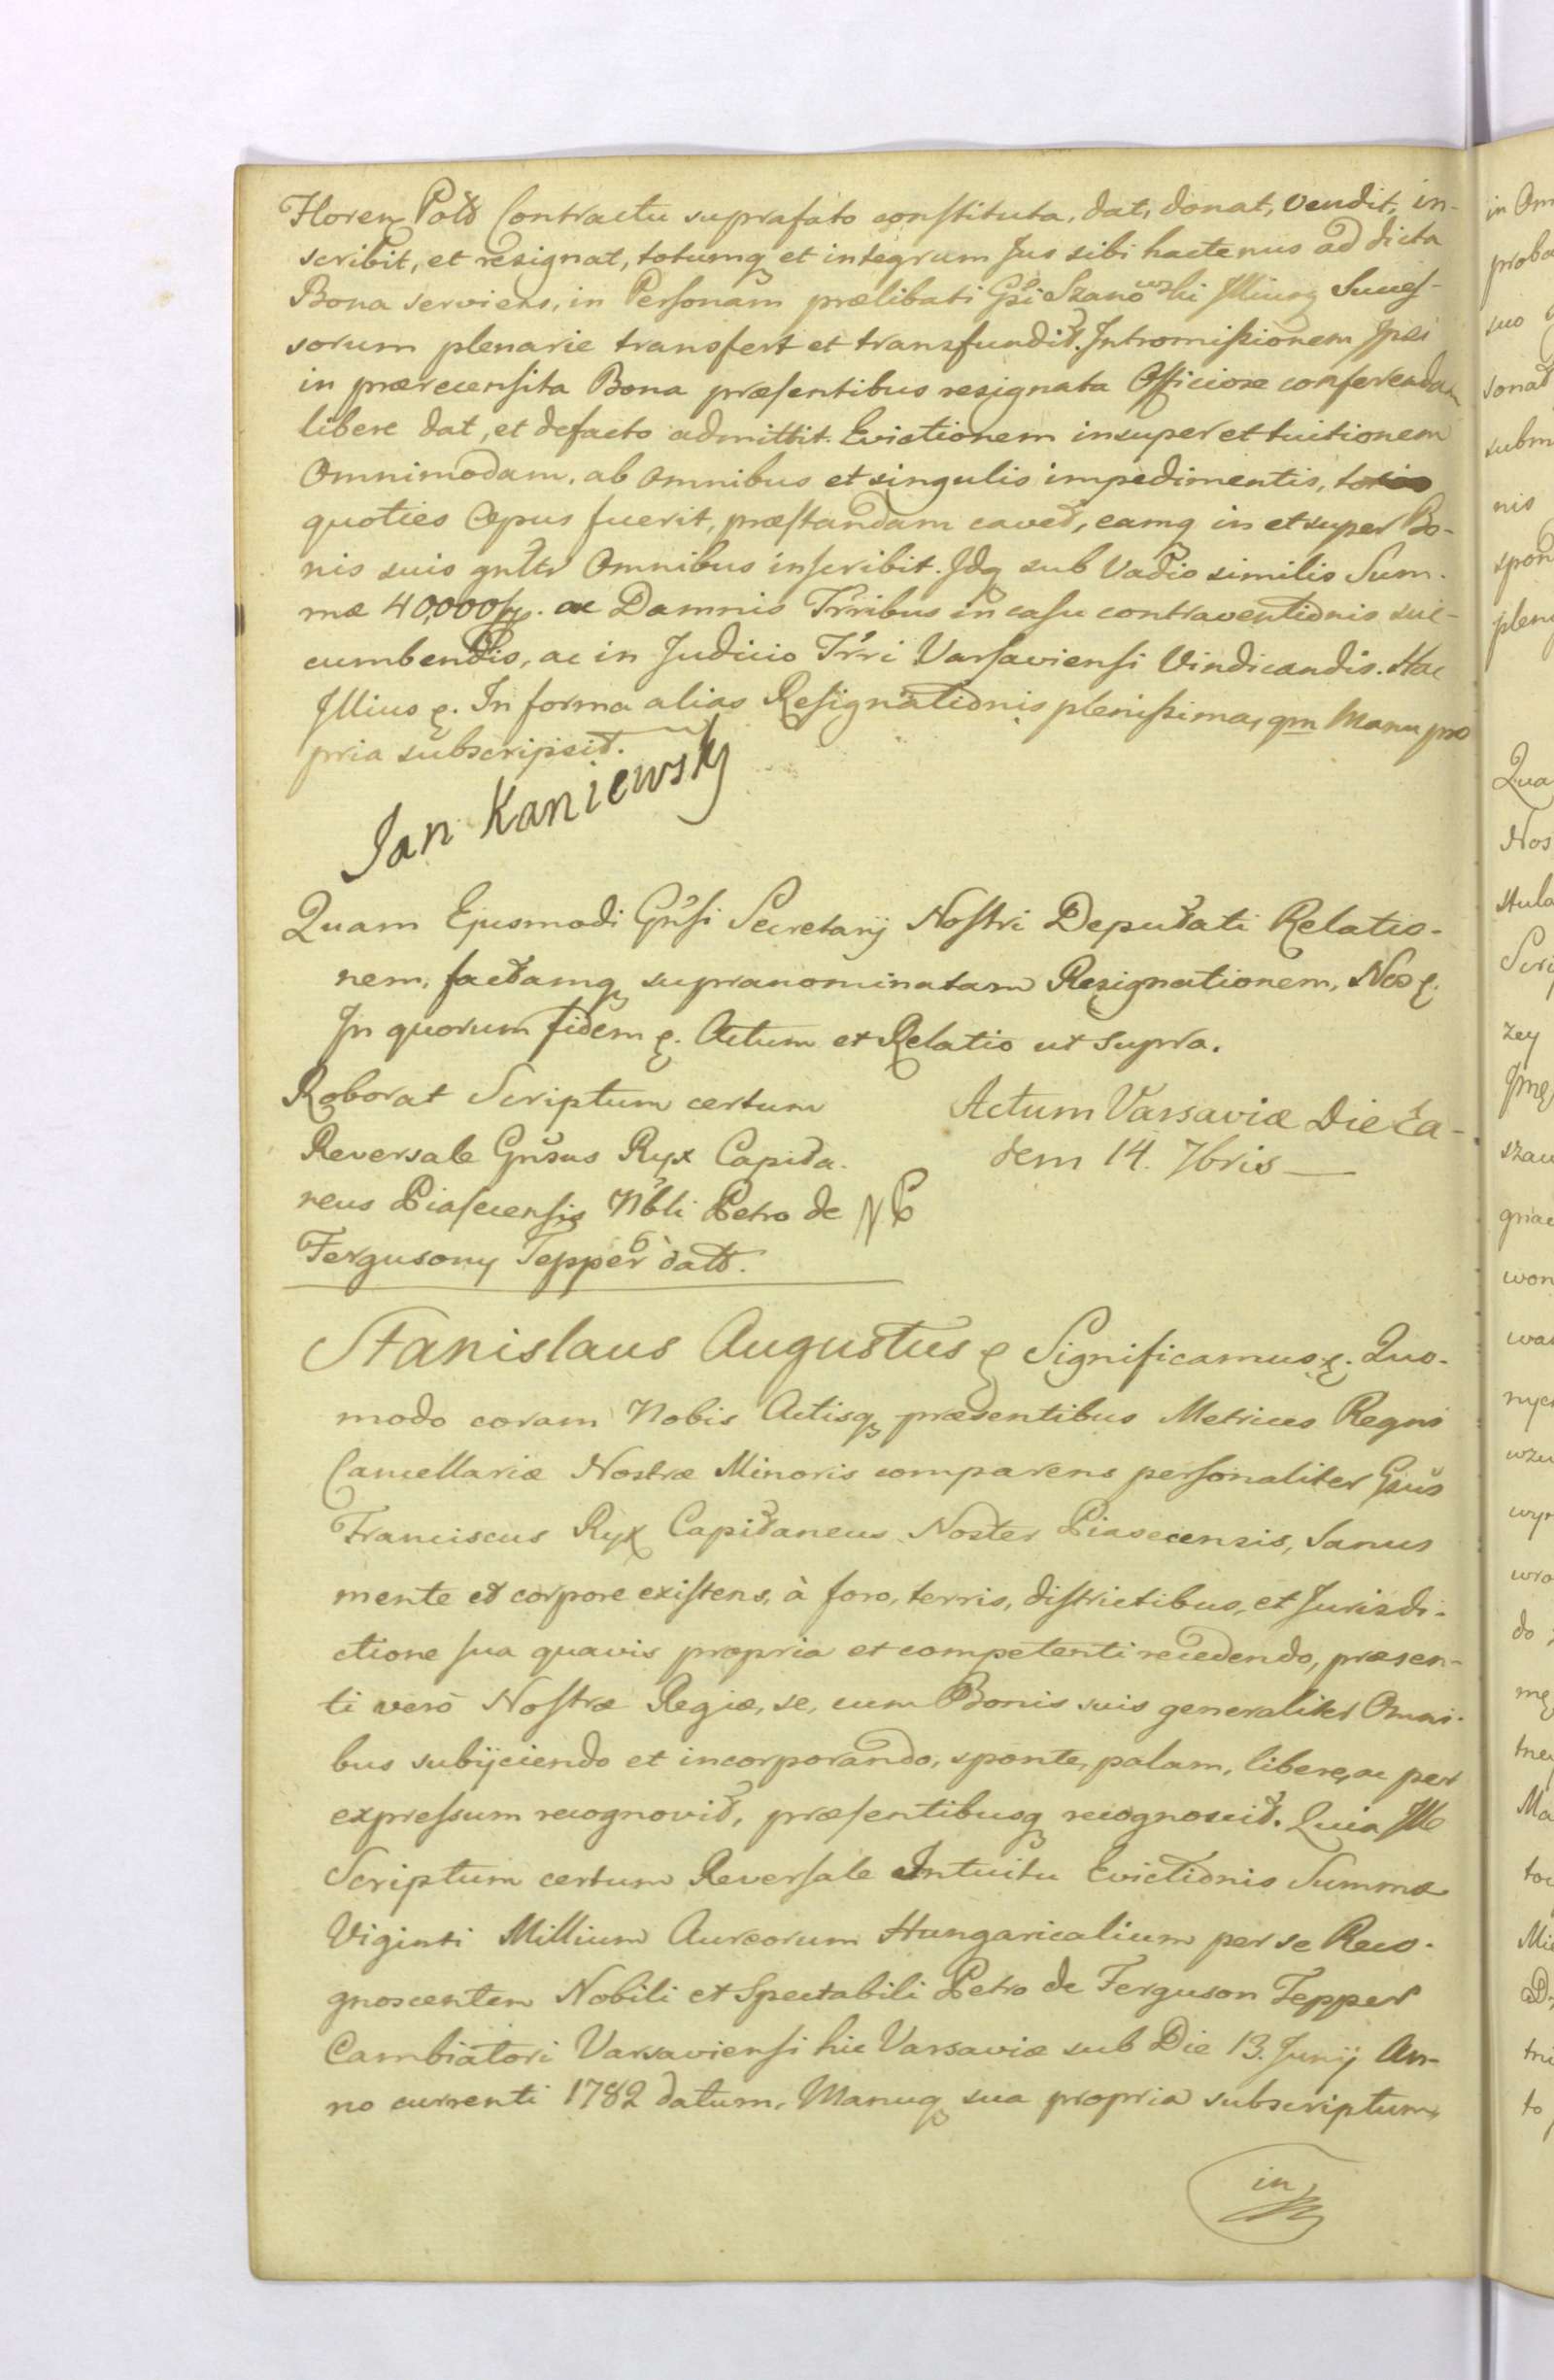 Floren Polo Contractu suprafato constituta, dat, donat, Vendit, in-
scribit, et resignat, totumq et integrum Jus sibi hactenus ad dicta
Bona serviens, in Personam prælibati Gsi Szanowski Illiusq Succes-
sorum plenarie transfert et transfundit. Intromissionem Ipsi
in prærecensita Bona præsentibus resignata Officiose conferendam
libere dat, et defacto admittit. Evictionem insuper et tuitionem
Omnimodam, ab Omnibus et singulis impedimentis, toties
quoties Opus fuerit, præstandam cavet, eamq in et super Bo-
nis suis gnltr Omnibus inscribit. Idq sub Vadio similis Sum-
mæ 40,000 ac Damnis Trribus in casu contraventionis suc-
cumbendis, ac in Judicio Trri Varsaviensi Vindicandis. Hac
Illius. In forma alias Resignationis plenissima, qm Manu pro
pria subscripsit.
Jan Kaniewsky
Quam Ejusmodi Gnsi Secretarij Nostri Deputati Relatio-
nem, factamq supranominatam Resignationem, Nos
In quorum fidem. Actum et Relatio ut supra.
Roborat Scriptum certum
Reversale Gnsus Ryx Capita-
neus Piasecensis Nbli Petro de
Fergusony Tepper dato.
Actum Varsaviæ Die Ea-
dem 14. 7bris
Stanislaus Augustus Significamus. Quo-
modo coram Nobis Actisq præsentibus Metrices Regni
Cancellariæ Nostræ Minoris comparens personaliter Gsus
Franciscus Ryx Capitaneus Noster Piasecensis, Sanus
mente et corpore existens, à foro, terris, districtibus, et Jurisdi-
ctione sua quavis propria et competenti recedendo, præsen-
ti verò Nostræ Regiæ, se, cum Bonis suis generaliter Omni-
bus subijciendo et incorporando, sponte, palam, libere, ac per
expressum recognovit, præsentibusq recognoscit. Quia Ille
Scriptum certum Reversale Intuitu Evictionis Summæ
Viginti Millium Aureorum Hungaricalium per se Reco-
gnoscentem Nobili et Spectabili Petro de Ferguson Tepper
Cambiatori Varsaviensi hic Varsaviæ sub Die 13. Junij An-
no currenti 1782 datum, Manuq sua propria subscriptum,
in